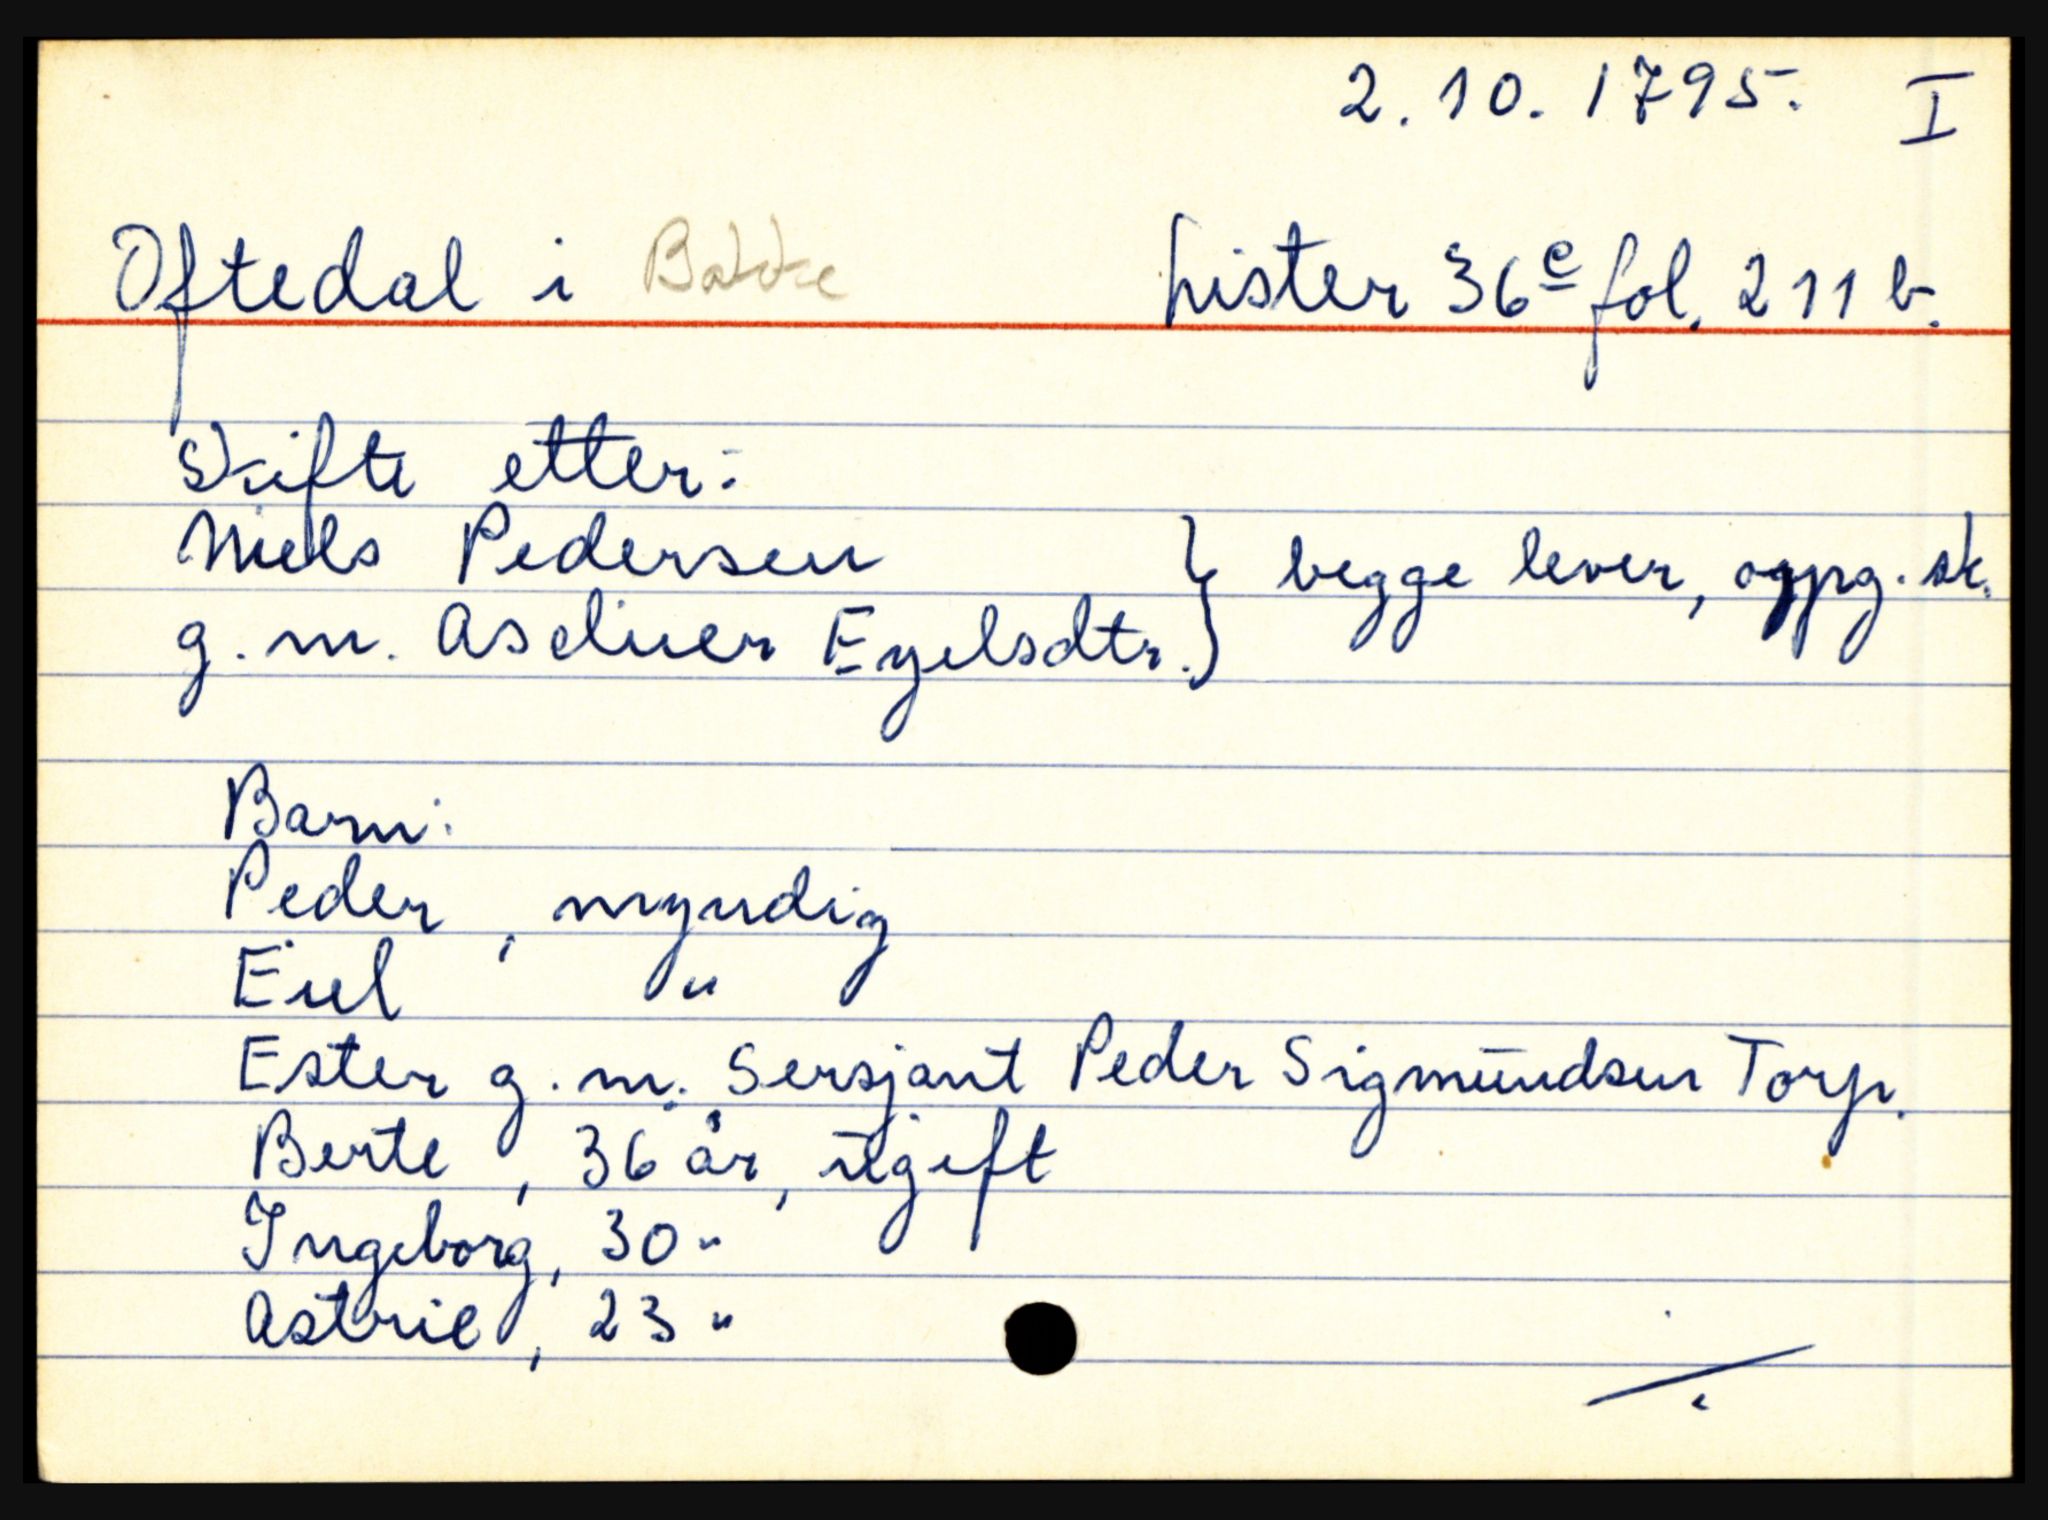 2.10.1795. I
Oftedal i Bakke Lister 36c fol. 211 b.
Skifte etter:
Niels Pedersen } begge lever, oppg. sk.
g.m. Asluer Eyelsdtr.
Barn:
Peder, myndig
Eiel "
Ester g.m. Sersjant Peder Sigmundsen Torp.
Berte, 36 år, ugift
Ingeborg, 30 "
Astrie, 23 "